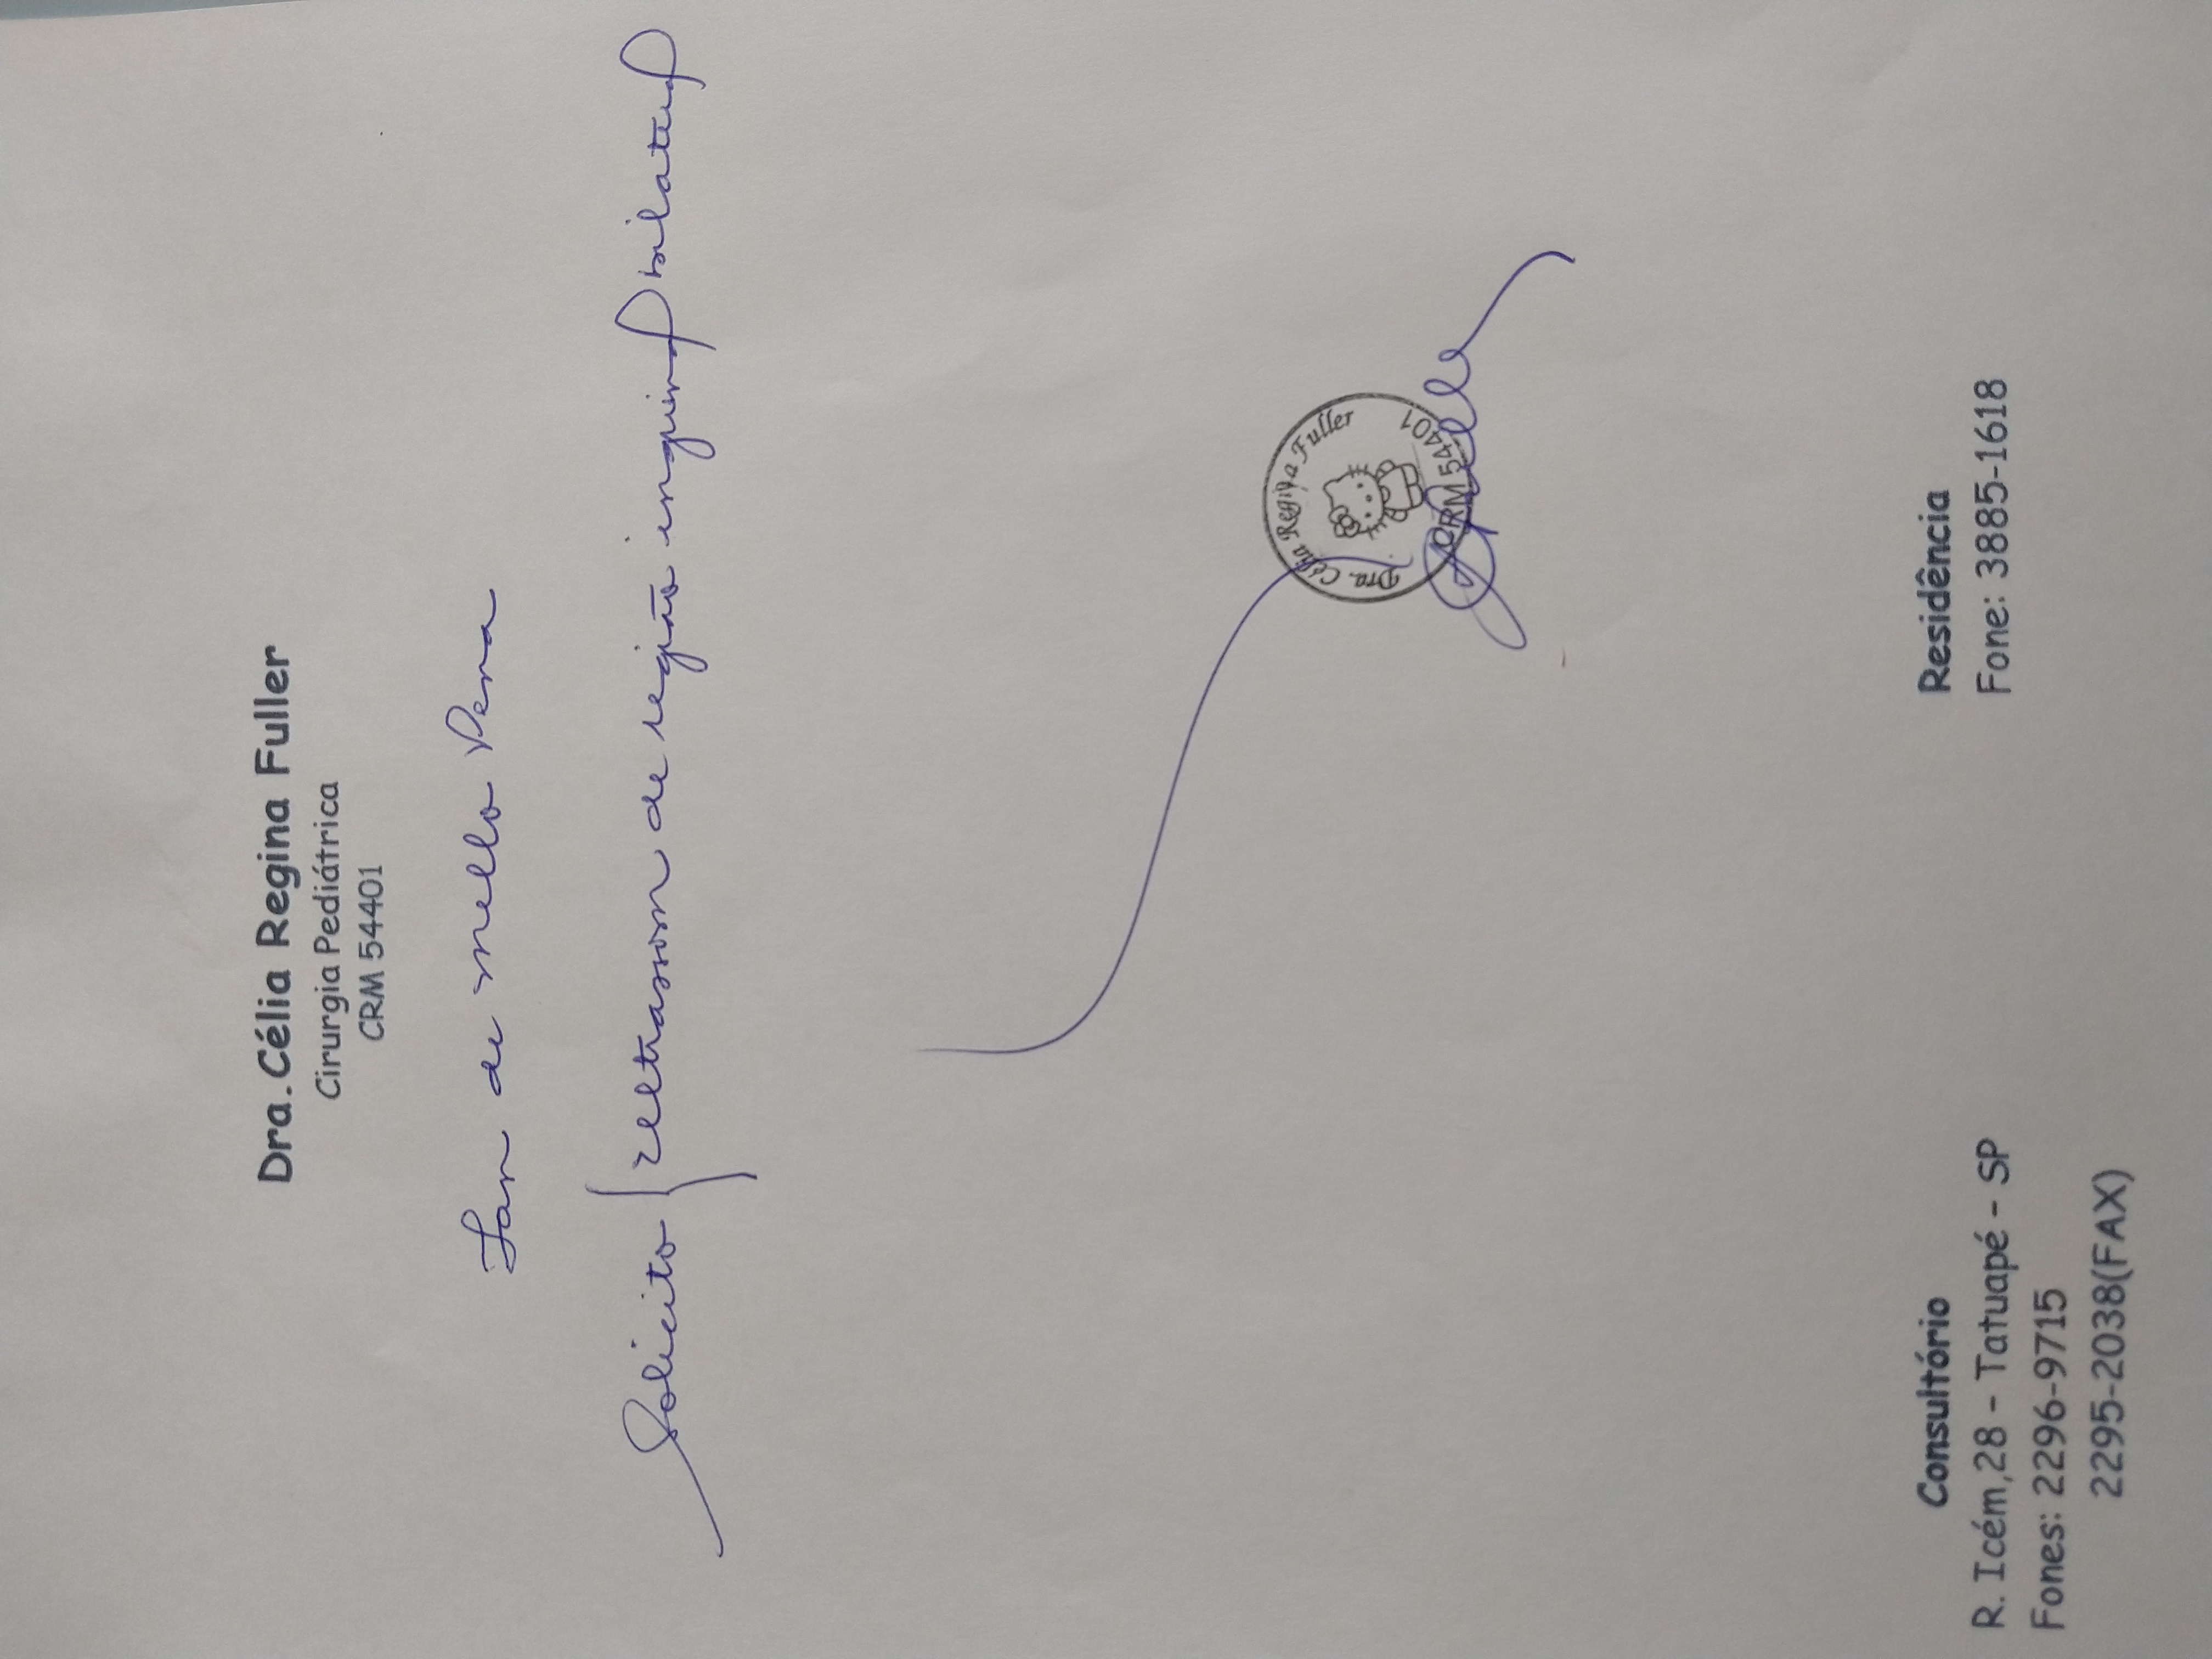 Dra. Célia Regina Fuller
Cirurgia Pediátrica
CRM 54401
Ian de Mello Pena
Solicito { Ultrassom de região inguinal bilateral
Dra. Célia Regina Fuller
CRM 54401
Consultório
R. Icém,28 - Tatuapé - SP
Fones: 2296-9715
2295-2038(FAX)
Residência
Fone: 3885-1618